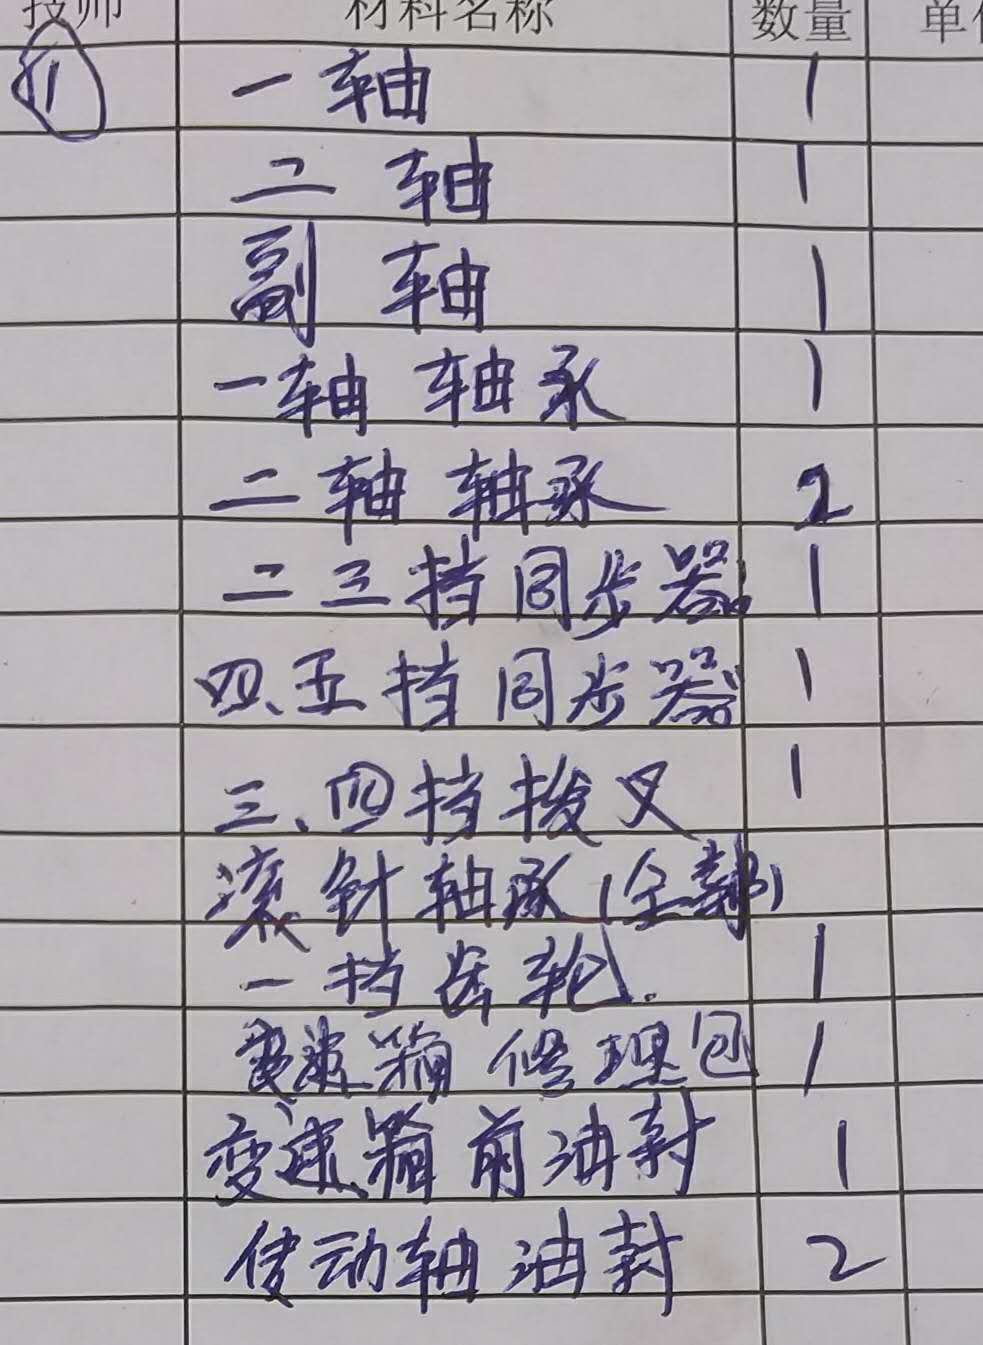 技师 材料名称 数量 单
11 一轴 1
二轴 1
副轴 1
一轴 轴承 1
二轴 轴承 2
二三挡同步器 1
四、五挡同步器 1
三、四挡拨叉 1
滚针轴承(全部)
一挡齿轮. 1
变速箱修理包 1
变速箱前油封 1
传动轴油封 2